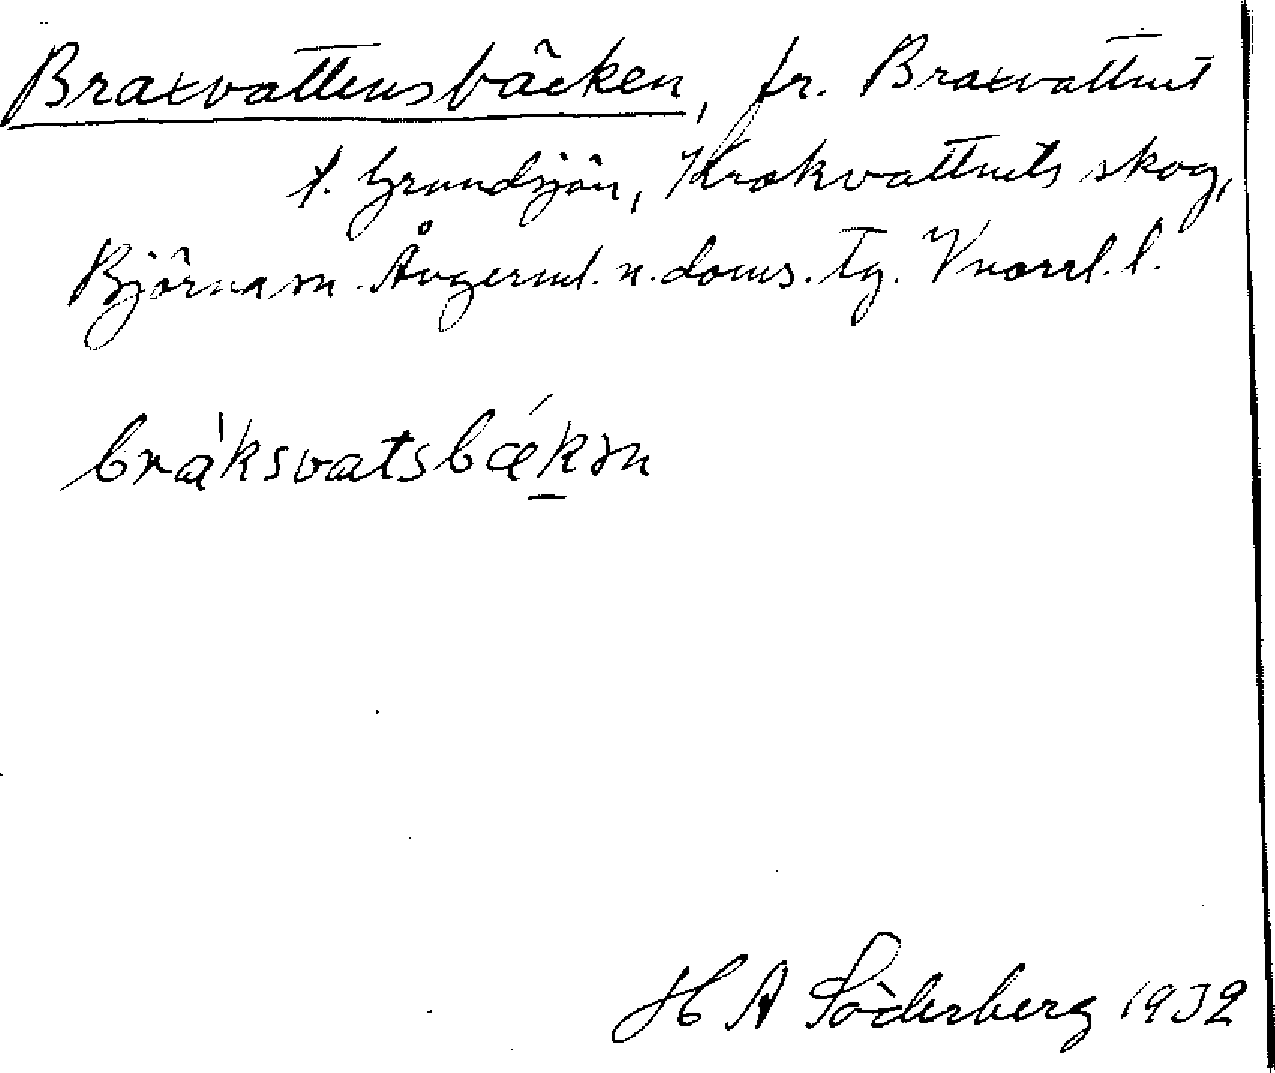 Braxvattensbäcken, fr. Braxvattnet
t. Grundsjön, Krokvattnets skog,
Björna sn. Ångerml. n. doms. Tg. Vnorrl. l.
bráksvatsbækən
H A Söderberg 1932